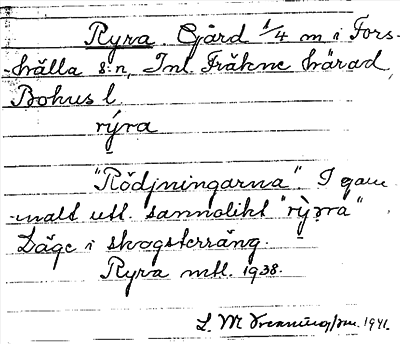 Ryra. Gård 1/4 m i Fors-
hälla s:n, Inl Fräkne härad,
Bohus l
rýra
"Rödjningarna". I gam
malt utt. sannolikt "rỳrra"
Läge i skogsterräng.
Ryra mtl. 1938.
L. M 1941.